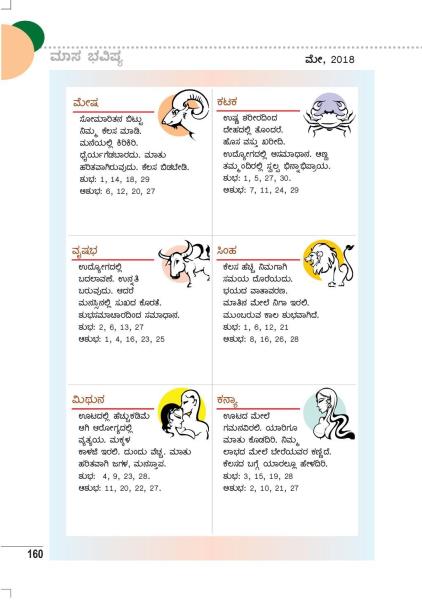 ಮಾಸ ಭವಿಷ್ಯ
ಮೇ, 2018
ಮೇಷ
ಸೋಮಾರಿತನ ಬಿಟ್ಟು
ನಿಮ್ಮ ಕೆಲಸ ಮಾಡಿ.
ಮನೆಯಲ್ಲಿ ಕಿರಿಕಿರಿ.
ಧೈರ್ಯಗೆಡಬಾರದು. ಮಾತು
ಹರಿತವಾಗಿರುವುದು. ಕೆಲಸ ಬಿಡಬೇಡಿ.
ಶುಭ: 1, 14, 18, 29
ಅಶುಭ: 6, 12, 20, 27
ಕಟಕ
ಉಷ್ಣ ಶರೀರದಿಂದ
ದೇಹದಲ್ಲಿ ತೊಂದರೆ.
ಹೊಸ ವಸ್ತು ಖರೀದಿ.
ಉದ್ಯೋಗದಲ್ಲಿ ಅಸಮಾಧಾನ. ಅಣ್ಣ
ತಮ್ಮಂದಿರಲ್ಲಿ ಸ್ವಲ್ಪ ಭಿನ್ನಾಭಿಪ್ರಾಯ.
ಶುಭ: 1, 5, 27, 30.
ಅಶುಭ: 7, 11, 24, 29
ವೃಷಭ
ಉದ್ಯೋಗದಲ್ಲಿ
ಬದಲಾವಣೆ. ಉನ್ನತಿ
ಬರುವುದು. ಆದರೆ
ಮನಸ್ಸಿನಲ್ಲಿ ಸುಖದ ಕೊರತೆ.
ಶುಭಸಮಾಚಾರದಿಂದ ಸಮಾಧಾನ.
ಶುಭ: 2, 6, 13, 27
ಅಶುಭ: 1, 4, 16, 23, 25
ಸಿಂಹ
ಕೆಲಸ ಹೆಚ್ಚಿ ನಿಮಗಾಗಿ
ಸಮಯ ದೊರೆಯದು.
ಭಯದ ವಾತಾವರಣ.
ಮಾತಿನ ಮೇಲೆ ನಿಗಾ ಇರಲಿ.
ಮುಂಬರುವ ಕಾಲ ಶುಭವಾಗಿದೆ.
ಶುಭ: 1, 6, 12, 21
ಅಶುಭ: 8, 16, 26, 28
ಮಿಥುನ
ಊಟದಲ್ಲಿ ಹೆಚ್ಚುಕಡಿಮೆ
ಆಗಿ ಆರೋಗ್ಯದಲ್ಲಿ
ವ್ಯತ್ಯಯ. ಮಕ್ಕಳ
ಕಾಳಜಿ ಇರಲಿ. ದುಂದು ವೆಚ್ಚ. ಮಾತು
ಹರಿತವಾಗಿ ಜಗಳ, ಮನಸ್ತಾಪ.
ಶುಭ: 4, 9, 23, 28.
ಅಶುಭ: 11, 20, 22, 27.
ಕನ್ಯಾ
ಊಟದ ಮೇಲೆ
ಗಮನವಿರಲಿ. ಯಾರಿಗೂ
ಮಾತು ಕೊಡದಿರಿ. ನಿಮ್ಮ
ಲಾಭದ ಮೇಲೆ ಬೇರೆಯವರ ಕಣ್ಣಿದೆ.
ಕೆಲಸದ ಬಗ್ಗೆ ಯಾರಲ್ಲೂ ಹೇಳದಿರಿ.
ಶುಭ: 3, 15, 19, 28
ಅಶುಭ: 2, 10, 21, 27
160